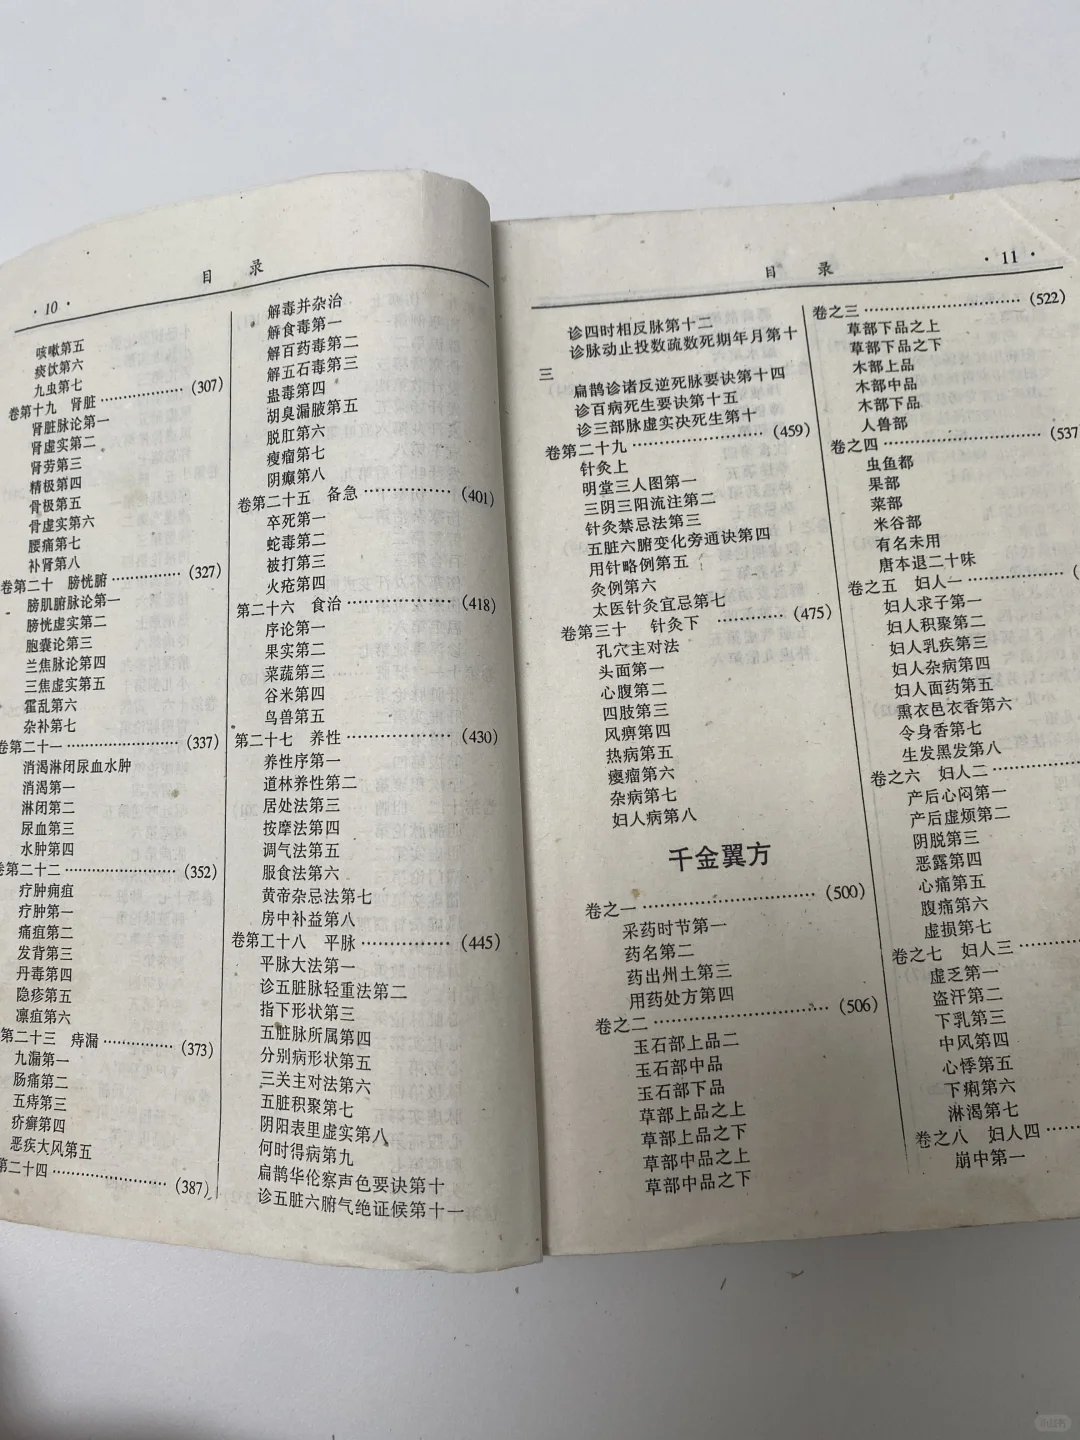 · 10 ·
目 录
咳嗽第五
痰饮第六
九虫第七
卷第十九 肾脏 ………… (307)
肾脏脉论第一
肾虚实第二
肾劳第三
精极第四
骨极第五
骨虚实第六
腰痛第七
补肾第八
卷第二十 膀恍腑 ………… (327)
膀肌腑脉论第一
膀恍虚实第二
胞囊论第三
兰焦脉论第四
三焦虚实第五
霍乱第六
杂补第七
卷第二十一 ………… (337)
消渴淋闭尿血水肿
消渴第一
淋闭第二
尿血第三
水肿第四
卷第二十二 ………… (352)
疗肿痈疽
疗肿第一
痛疽第二
发背第三
丹毒第四
隐疹第五
凛疽第六
第二十三 痔漏 ………… (373)
九漏第一
肠痛第二
五痔第三
疥癣第四
恶疾大风第五
第二十四 ………… (387)
解毒并杂治
解食毒第一
解百药毒第二
解五石毒第三
蛊毒第四
胡臭漏腋第五
脱肛第六
瘦瘤第七
阴癫第八
卷第二十五 备急 ………… (401)
卒死第一
蛇毒第二
被打第三
火疮第四
第二十六 食治 ………… (418)
序论第一
果实第二
菜蔬第三
谷米第四
鸟兽第五
第二十七 养性 ………… (430)
养性序第一
道林养性第二
居处法第三
按摩法第四
调气法第五
服食法第六
黄帝杂忌法第七
房中补益第八
卷第工十八 平脉 ………… (445)
平脉大法第一
诊五脏脉轻重法第二
指下形状第三
五脏脉所属第四
分别病形状第五
三关主对法第六
五脏积聚第七
阴阳表里虚实第八
何时得病第九
扁鹊华伦察声色要诀第十
诊五脏六腑气绝证候第十一
目 录
· 11 ·
诊四时相反脉第十二
诊脉动止投数疏数死期年月第十
三
扁鹊诊诸反逆死脉要诀第十四
诊百病死生要诀第十五
诊三部脉虚实决死生第十
卷第二十九 ………… (459)
针灸上
明堂三人图第一
三阴三阳流注第二
针灸禁忌法第三
五脏六腑变化旁通诀第四
用针略例第五
灸例第六
太医针灸宜忌第七
卷第三十 针灸下 ………… (475)
孔穴主对法
头面第一
心腹第二
四肢第三
风痹第四
热病第五
瘿瘤第六
杂病第七
妇人病第八
千金翼方
卷之一 ………… (500)
采药时节第一
药名第二
药出州土第三
用药处方第四
卷之二 ………… (506)
玉石部上品二
玉石部中品
玉石部下品
草部上品之上
草部上品之下
草部中品之上
草部中品之下
卷之三 ………… (522)
草部下品之上
草部下品之下
木部上品
木部中品
木部下品
人兽部
卷之四 ………… (537
虫鱼都
果部
菜部
米谷部
有名未用
唐本退二十味
卷之五 妇人一 ………… (
妇人求子第一
妇人积聚第二
妇人乳疾第三
妇人杂病第四
妇人面药第五
熏衣邑衣香第六
令身香第七
生发黑发第八
卷之六 妇人二 …………
产后心闷第一
产后虚烦第二
阴脱第三
恶露第四
心痛第五
腹痛第六
虚损第七
卷之七 妇人三 …………
虚乏第一
盗汗第二
下乳第三
中风第四
心悸第五
下痢第六
淋渴第七
卷之八 妇人四 …………
崩中第一
小红书